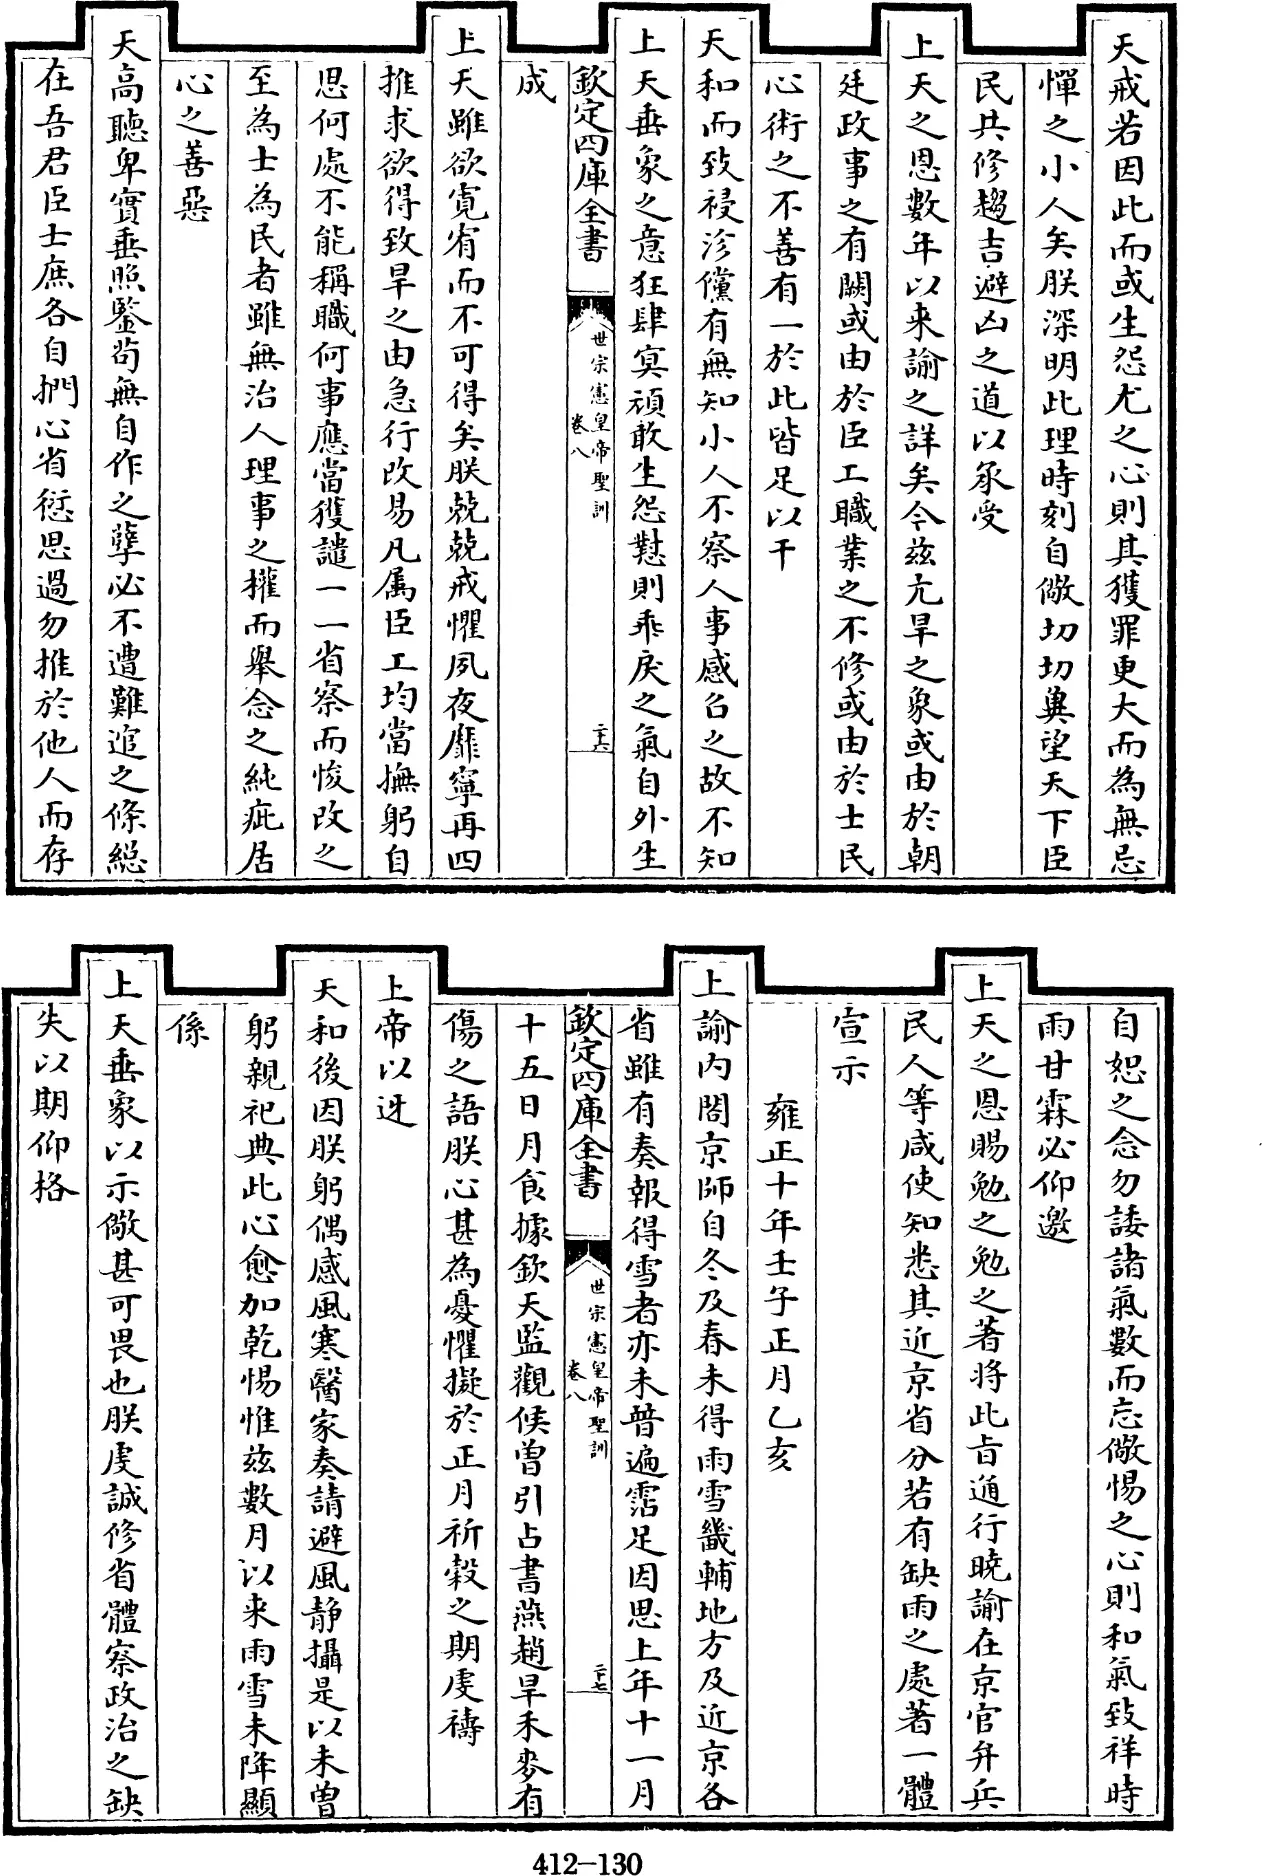 天戒若因此而或生怨尤之心則其獲罪更大而為無忌
憚之小人矣朕深明此理時刻自儆切切兾望天下臣
民共修趨吉避凶之道以承受
上天之恩數年以来諭之詳矣今兹亢旱之象或由於朝
廷政事之有闕或由於臣工職業之不修或由於士民
心術之不善有一於此皆足以干
天和而致祲沴儻有無知小人不察人事感召之故不知
上天垂象之意狂肆冥頑敢生怨懟則乖戾之氣自外生
欽定四庫全書
世宗憲皇帝聖訓
卷八
二十六
成
上天雖欲寛宥而不可得矣朕兢兢戒懼夙夜靡寧再四
推求欲得致旱之由急行改易凡属臣工均當撫躬自
思何處不能稱職何事應當獲譴一一省察而悛改之
至為士為民者雖無治人理事之權而舉念之純疵居
心之善惡
天高聽卑實垂照鑒茍無自作之孽必不遭難逭之條總
在吾君臣士庶各自捫心省愆思過勿推於他人而存
自恕之念勿諉諸氣數而忘儆惕之心則和氣致祥時
雨甘霖必仰邀
上天之恩賜勉之勉之著将此旨通行曉諭在京官弁兵
民人等咸使知悉其近京省分若有缺雨之處著一體
宣示
雍正十年壬子正月乙亥
上諭内閣京師自冬及春未得雨雪畿輔地方及近京各
省雖有奏報得雪者亦未普遍霑足因思上年十一月
欽定四庫全書
世宗憲皇帝聖訓
卷八
二十七
十五日月食據欽天監觀候曾引占書燕趙旱禾麥有
傷之語朕心甚為憂懼擬於正月祈穀之期虔禱
上帝以迓
天和後因朕躬偶感風寒醫家奏請避風静攝是以未曾
躬親祀典此心愈加乾惕惟兹數月以来雨雪未降顯
係
上天垂象以示儆甚可畏也朕虔誠修省體察政治之缺
失以期仰格
412—130